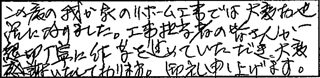 この度の我が家のリホーム工事では大変お世
話になりました。工事担当者の皆さんが
親切丁寧に作業を進めていただき大変
感謝いたしております。御礼申し上げます。